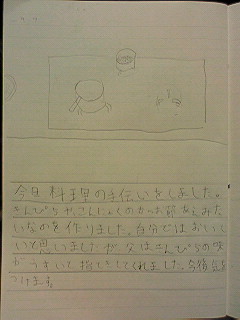 今日料理の手伝いをしました。
きんぴらやこんにゃくのかつお節あえみた
いなのを作りました。自分ではおいし
いと思いましたが はきんぴらの味
がうすいと指てきしてくれました。今後気を
つけます。